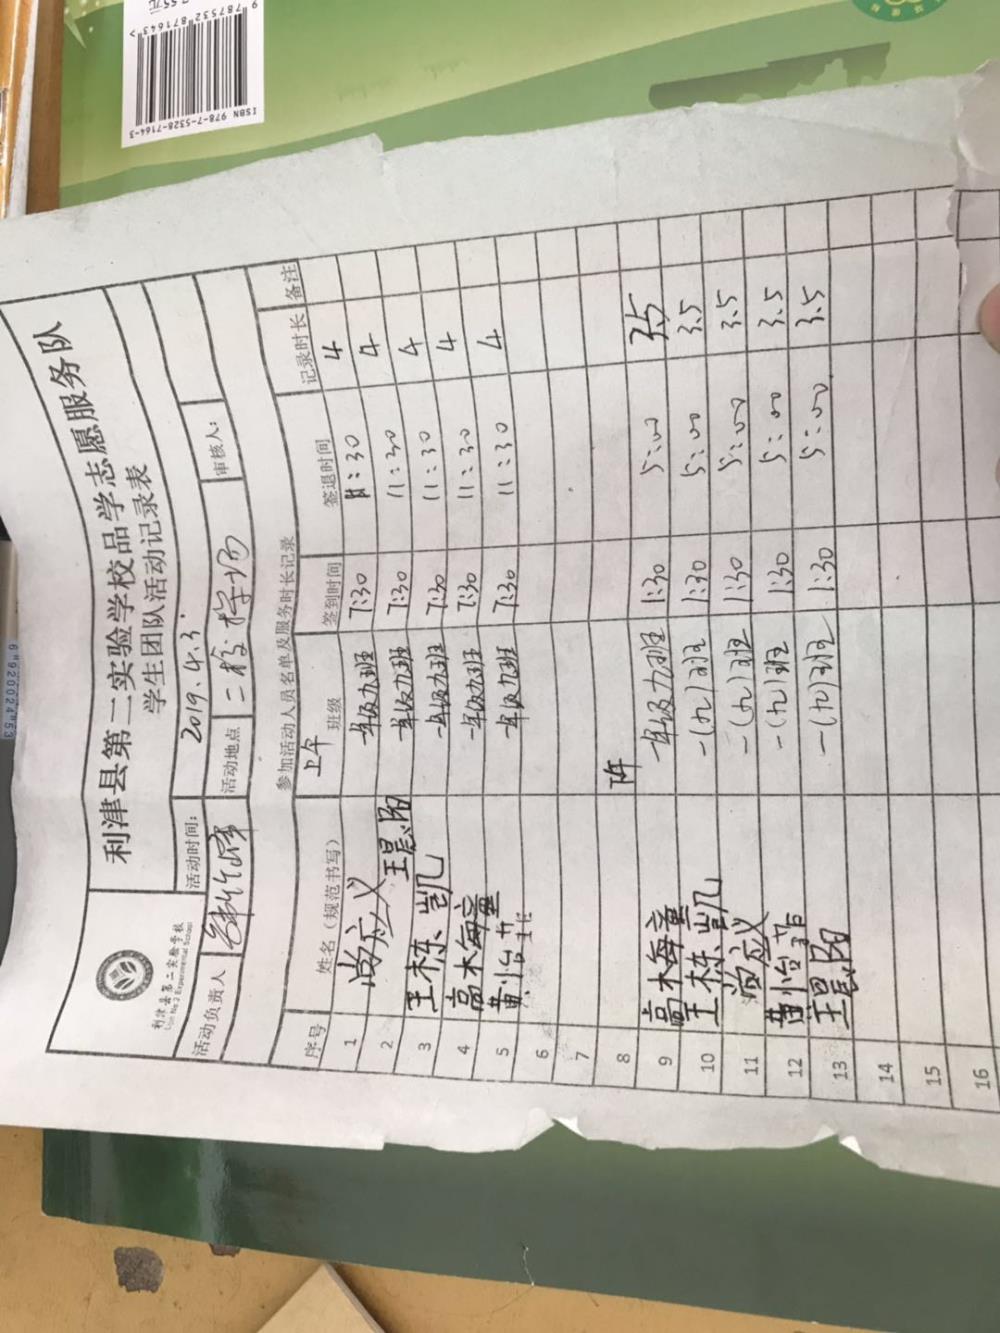 利津县第二实验学校品学志愿服务队
学生团队活动记录表
利津县第二实验学校
活动时间: 2019.4.3
活动负责人 活动地点 二校操场 审核人:
参加活动人员名单及服务时长记录
上午
序号 姓名(规范书写) 班级 签到时间 签退时间 记录时长 备注
1 尚应义 一年级九班 7:30 11:30 4
2 王晨阳 一年级九班 7:30 11:30 4
3 王栋凯 一年级九班 7:30 11:30 4
4 高木每童 一年级九班 7:30 11:30 4
5 黄怡菲 一年级九班 7:30 11:30 4
6
7
8
9 高木每童 一年级九班 1:30 5:00 3.5
10 王栋凯 一(九)班 1:30 5:00 3.5
11 尚应义 一(九)班 1:30 5:00 3.5
12 黄怡菲 一(九)班 1:30 5:00 3.5
13 王晨阳 一(九)班 1:30 5:00 3.5
14
15
16
ISBN 978-7-5328-7164-3
9 787532 871643 >